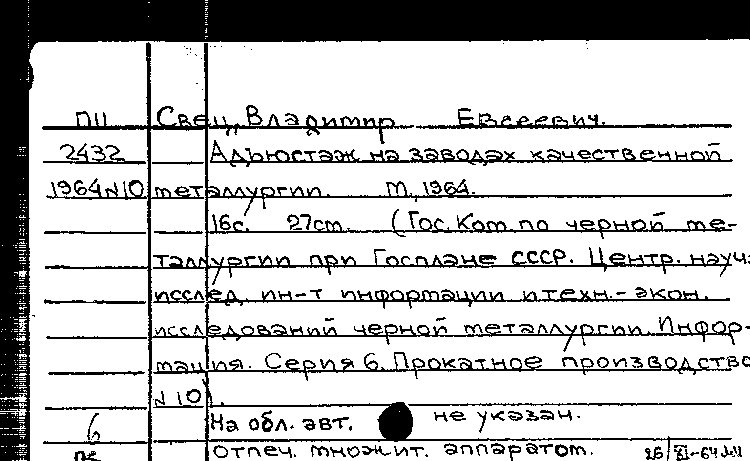 ПII Свец, Владимир Евсеевич.
2432 Адъюстаж на заводах качественной
1964 №10 металлургии. М., 1964.
16с. 27см. (Гос. Ком. по черной ме-
таллургии при Госплане СССР. Центр. науч.
исслед. ин-т информации и техн.-экон.
исследований черной металлургии. Инфор-
мация. Серия 6. Прокатное производство
№10).
6 На обл. авт. не указан.
отпеч. множит. аппаратом.